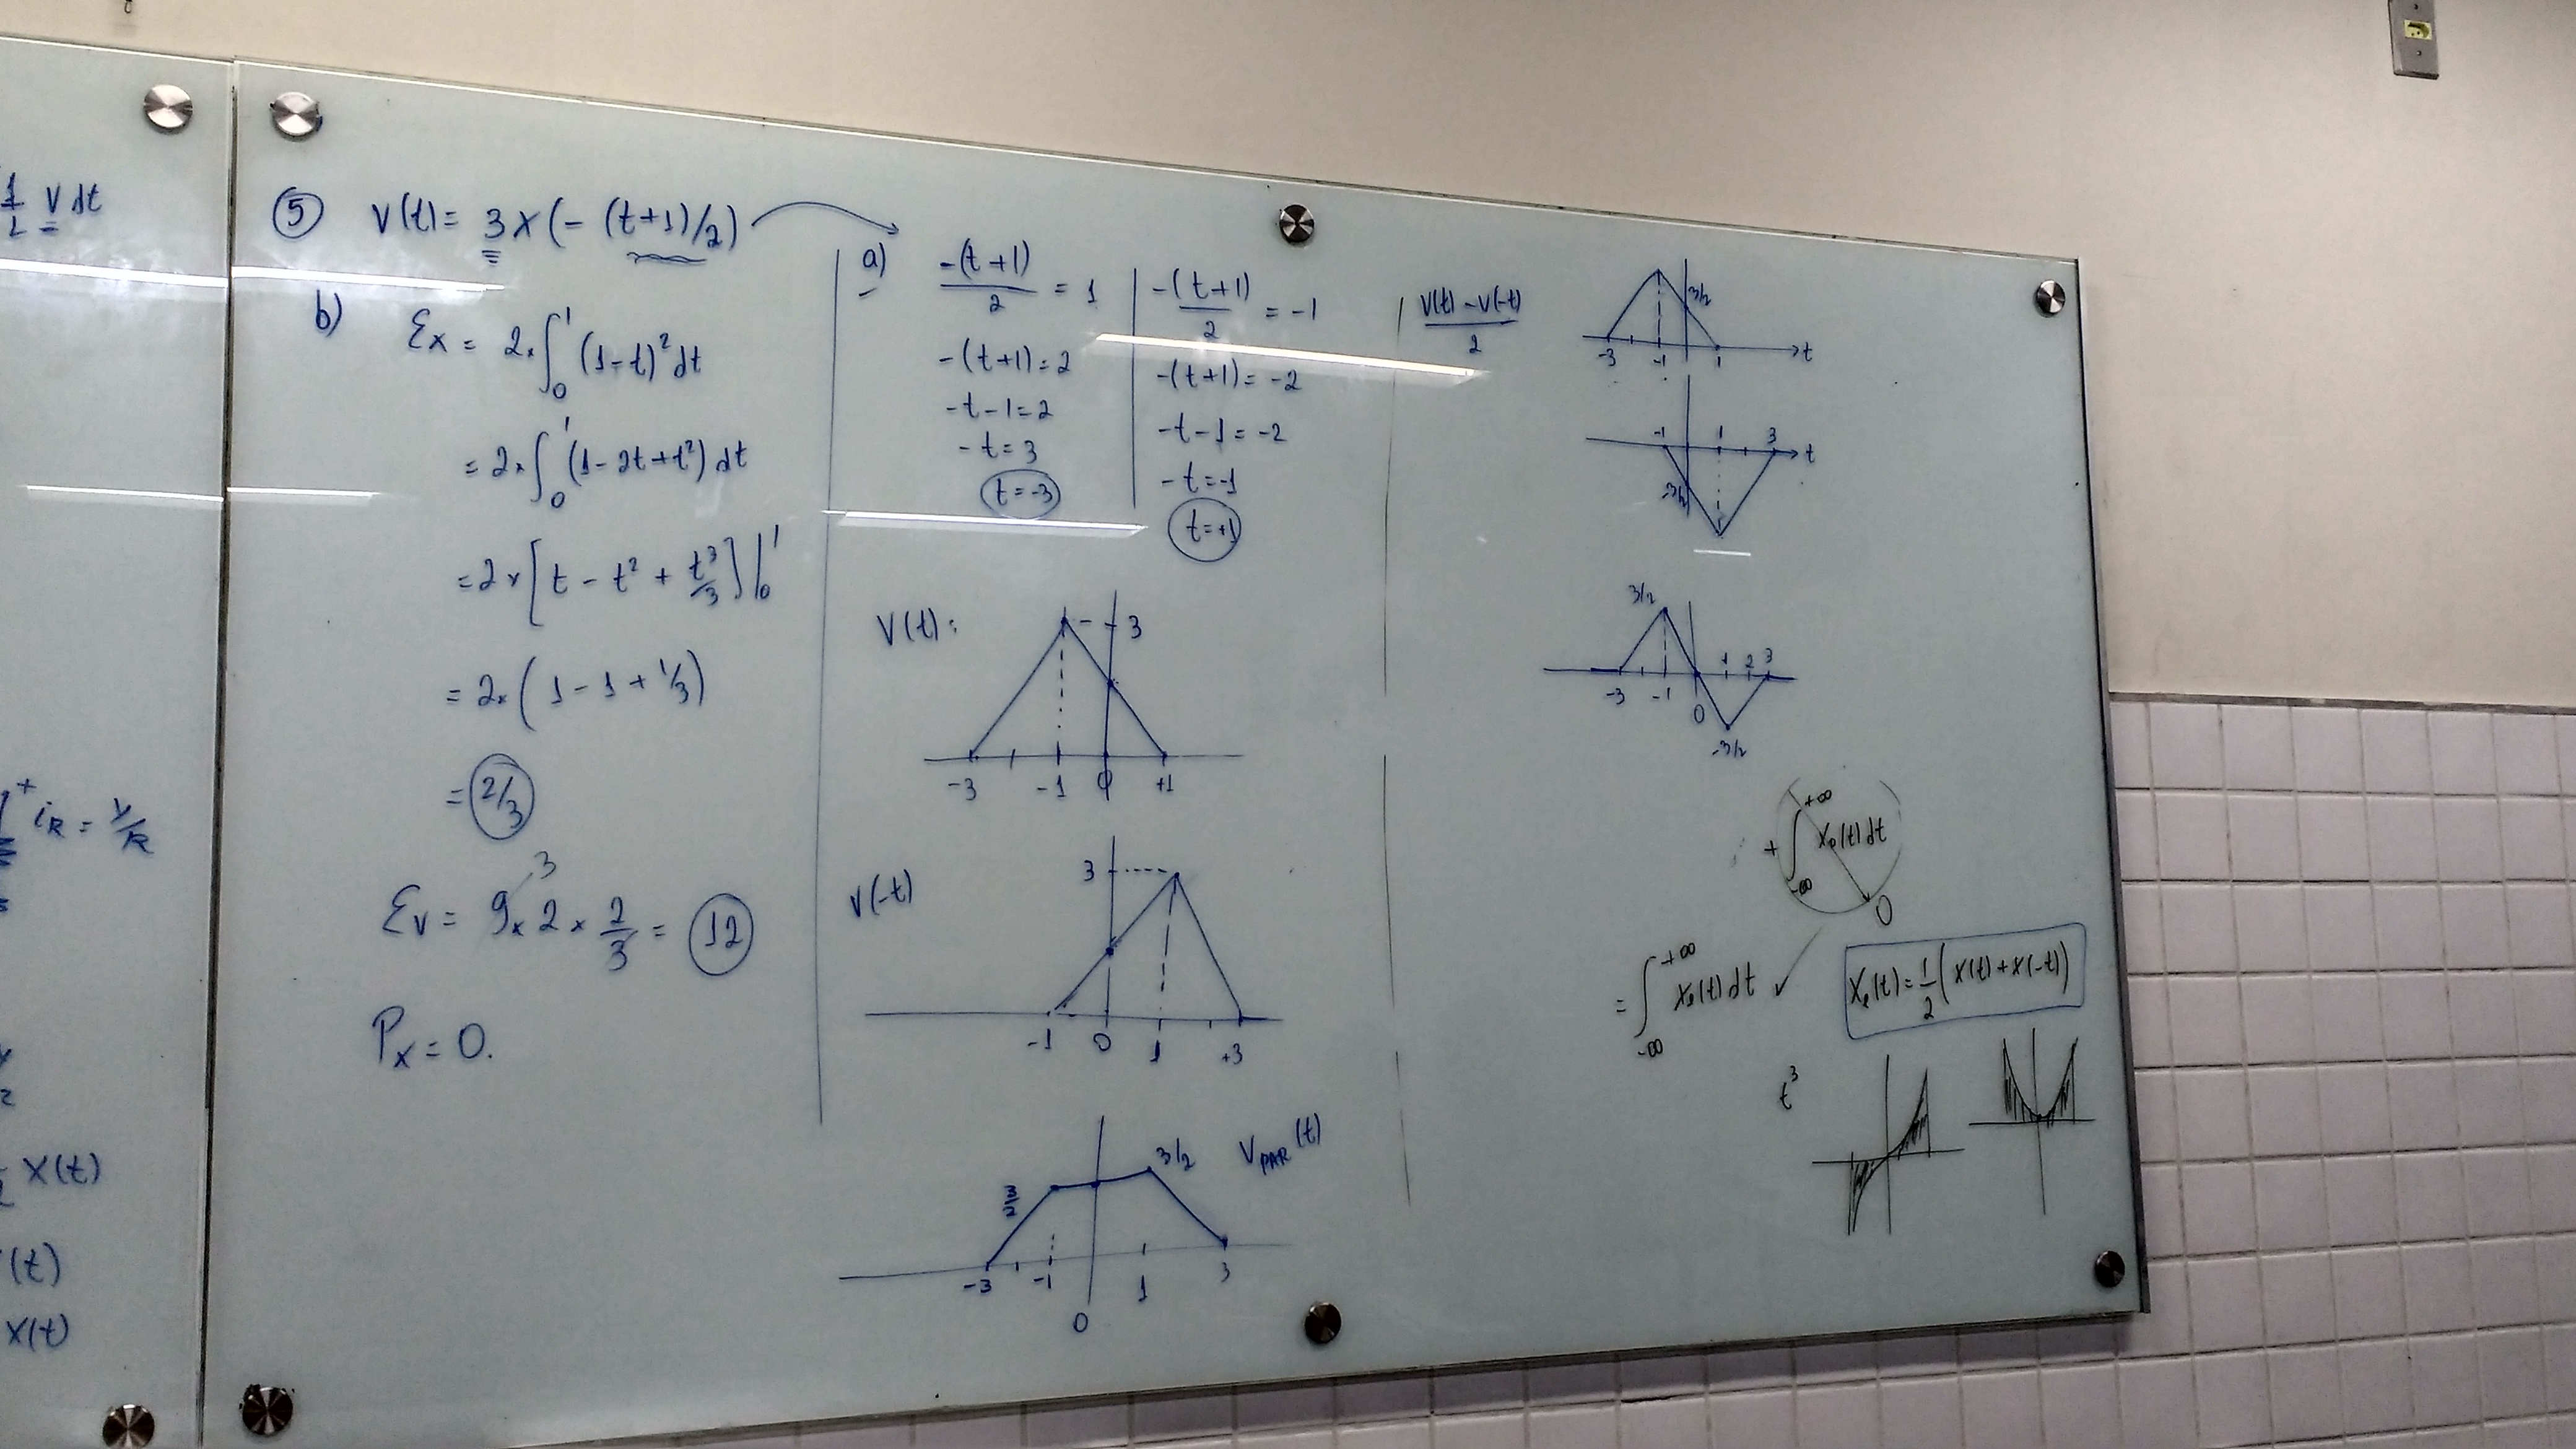 1/2 v dt
+ iR = V/R
x(t)
(t)
x(t)
⑤ V(t) = 3x(-(t+1)/2)
b) Ex = 2x∫₀¹ (1-t)² dt
= 2x∫₀¹ (1-2t+t²) dt
= 2x[t - t² + t³/3]|₀¹
= 2x(1-1+1/3)
= 2/3
3
Ev = 9x2x2/3 = 12
Px = 0.
a) -(t+1)/2 = 1
-(t+1) = 2
-t-1 = 2
-t = 3
t = -3
-(t+1)/2 = -1
-(t+1) = -2
-t-1 = -2
-t = -1
t = +1
V(t):
3
-3 -1 0 +1
V(-t)
3
-1 0 1 +3
3/2 3/2 VPAR(t)
-3 -1 1 3
0
V(t) - V(-t)
2
3/2
-3 -1 1 t
-1 1 3 t
-3/2
3/2
1 2 3
-3 -1 0
-3/2
+∞
+ ∫ Xo(t) dt
-∞
0
+∞
= ∫ Xe(t) dt ✓
-∞
Xe(t) = 1/2 (X(t) + X(-t))
t³